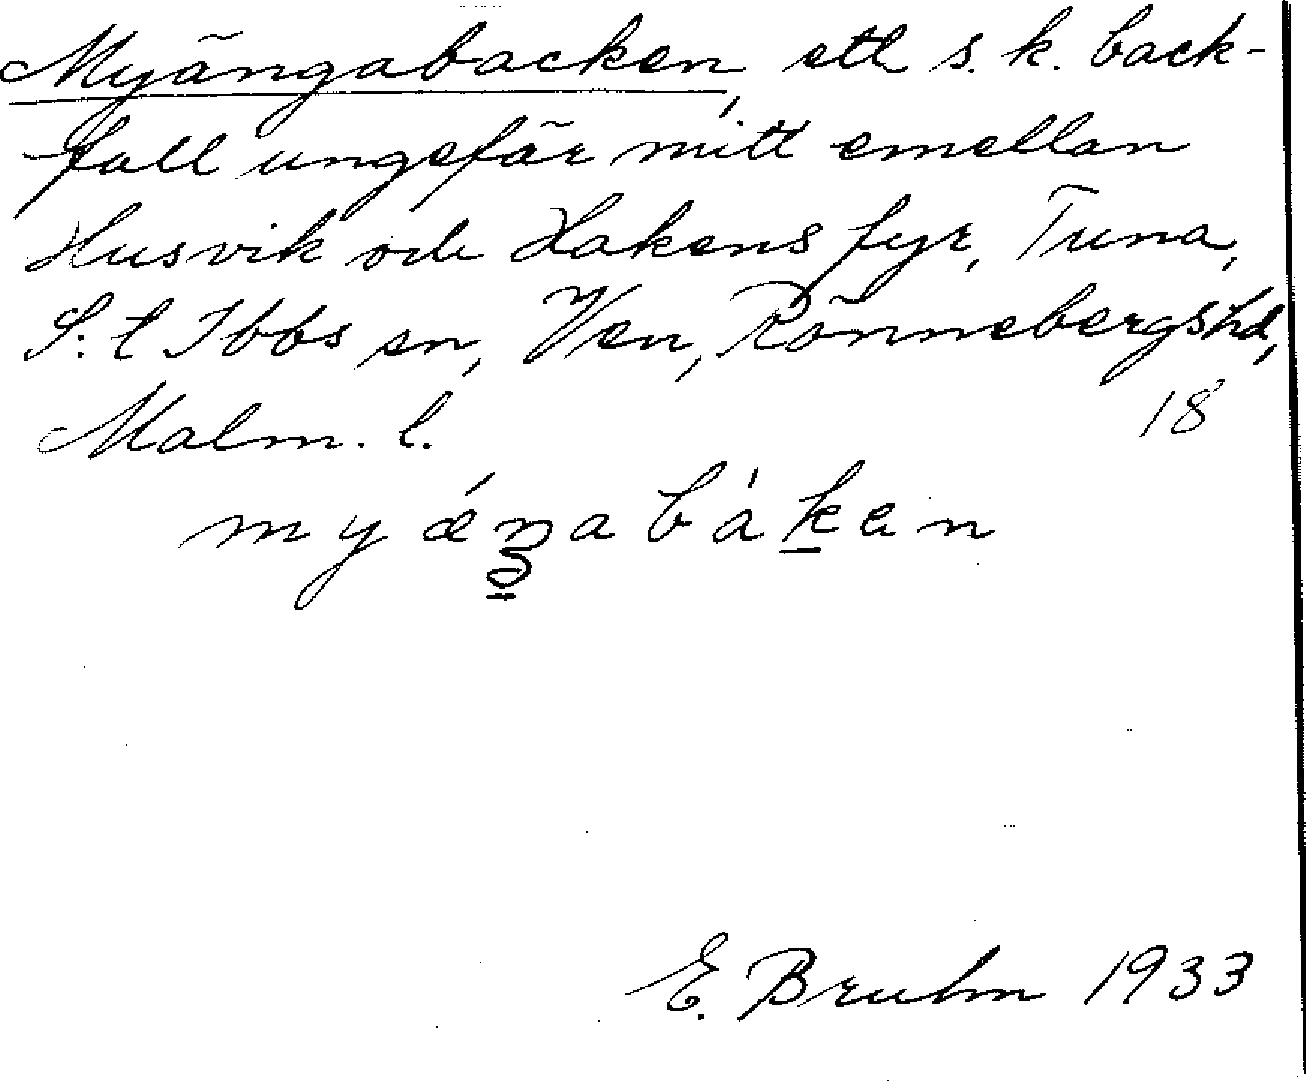 Myängabacken, ett s. k. back-
fall ungefär mitt emellan
Husvik och Hakens fyr, Tuna,
S:t Ibbs sn, Ven, Rönnebergs hd,
Malm. l.
18
my ǽŋa báken
E. Bruhn 1933